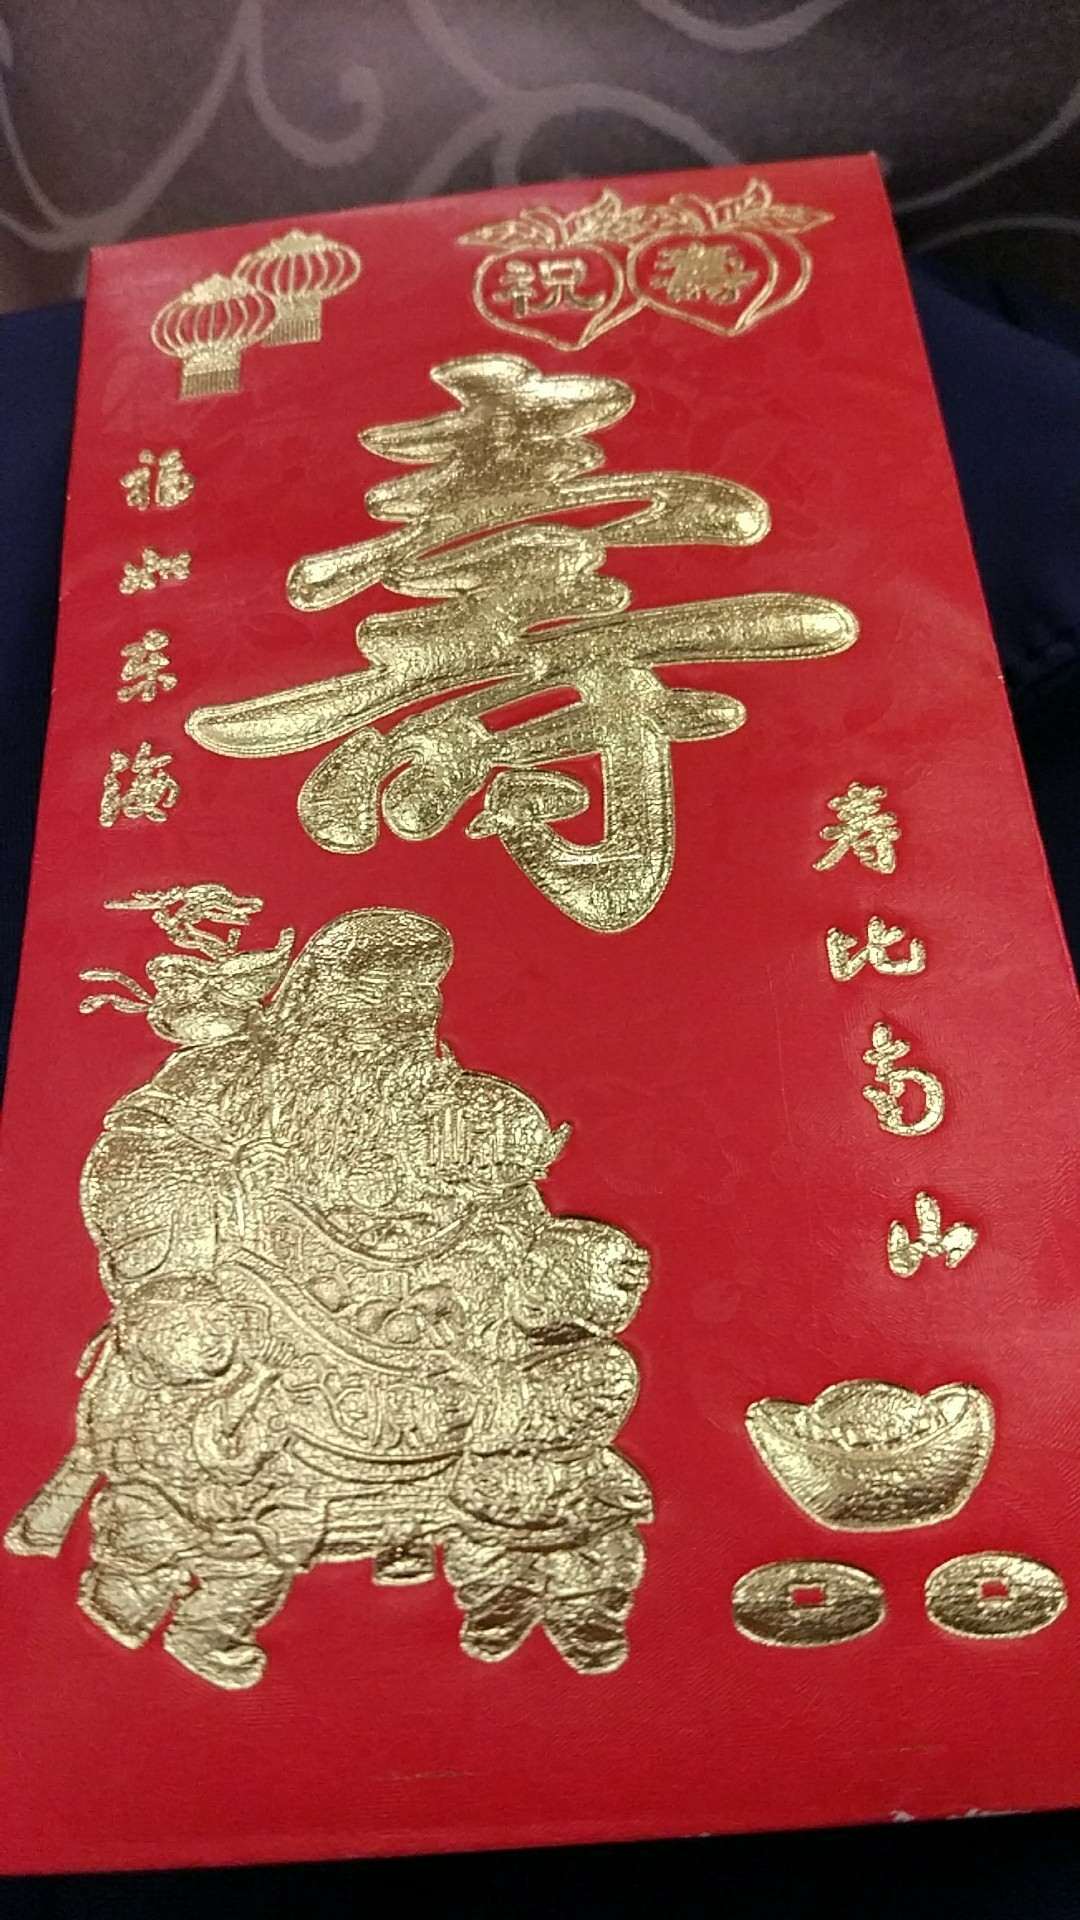 祝壽
寿
福如东海
寿比南山